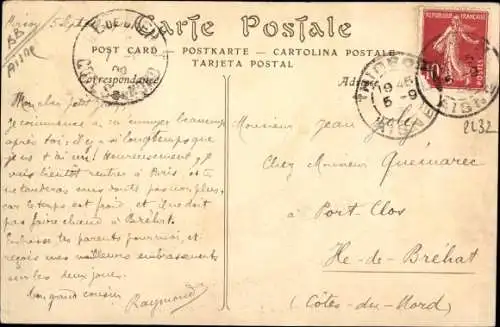 BB
Aisne
Carte Postale
POST CARD — POSTKARTE — CARTOLINA POSTALE
TARJETA POSTAL
Correspondance
RÉPUBLIQUE FRANÇAISE
10
POSTES
19 45
5 - 9
AISNE
2432
Mon petit
Je commence à m'ennuyer beaucoup
après toi; il y a si longtemps que
je ne t'ai vu! Heureusement, je
vais bientôt rentrer à Paris, et tu
ne tarderas sans doute pas non plus,
car le temps est froid et il ne doit
pas faire chaud à Bréhat.
Embrasse tes parents pour moi, et
reçois mes meilleurs embrassements
sur les deux joues.
Ton grand cousin
Raymond
Monsieur Jean
Chez Monsieur Quémarec
à Port Clos
Ile-de-Bréhat
(Côtes-du-Nord)